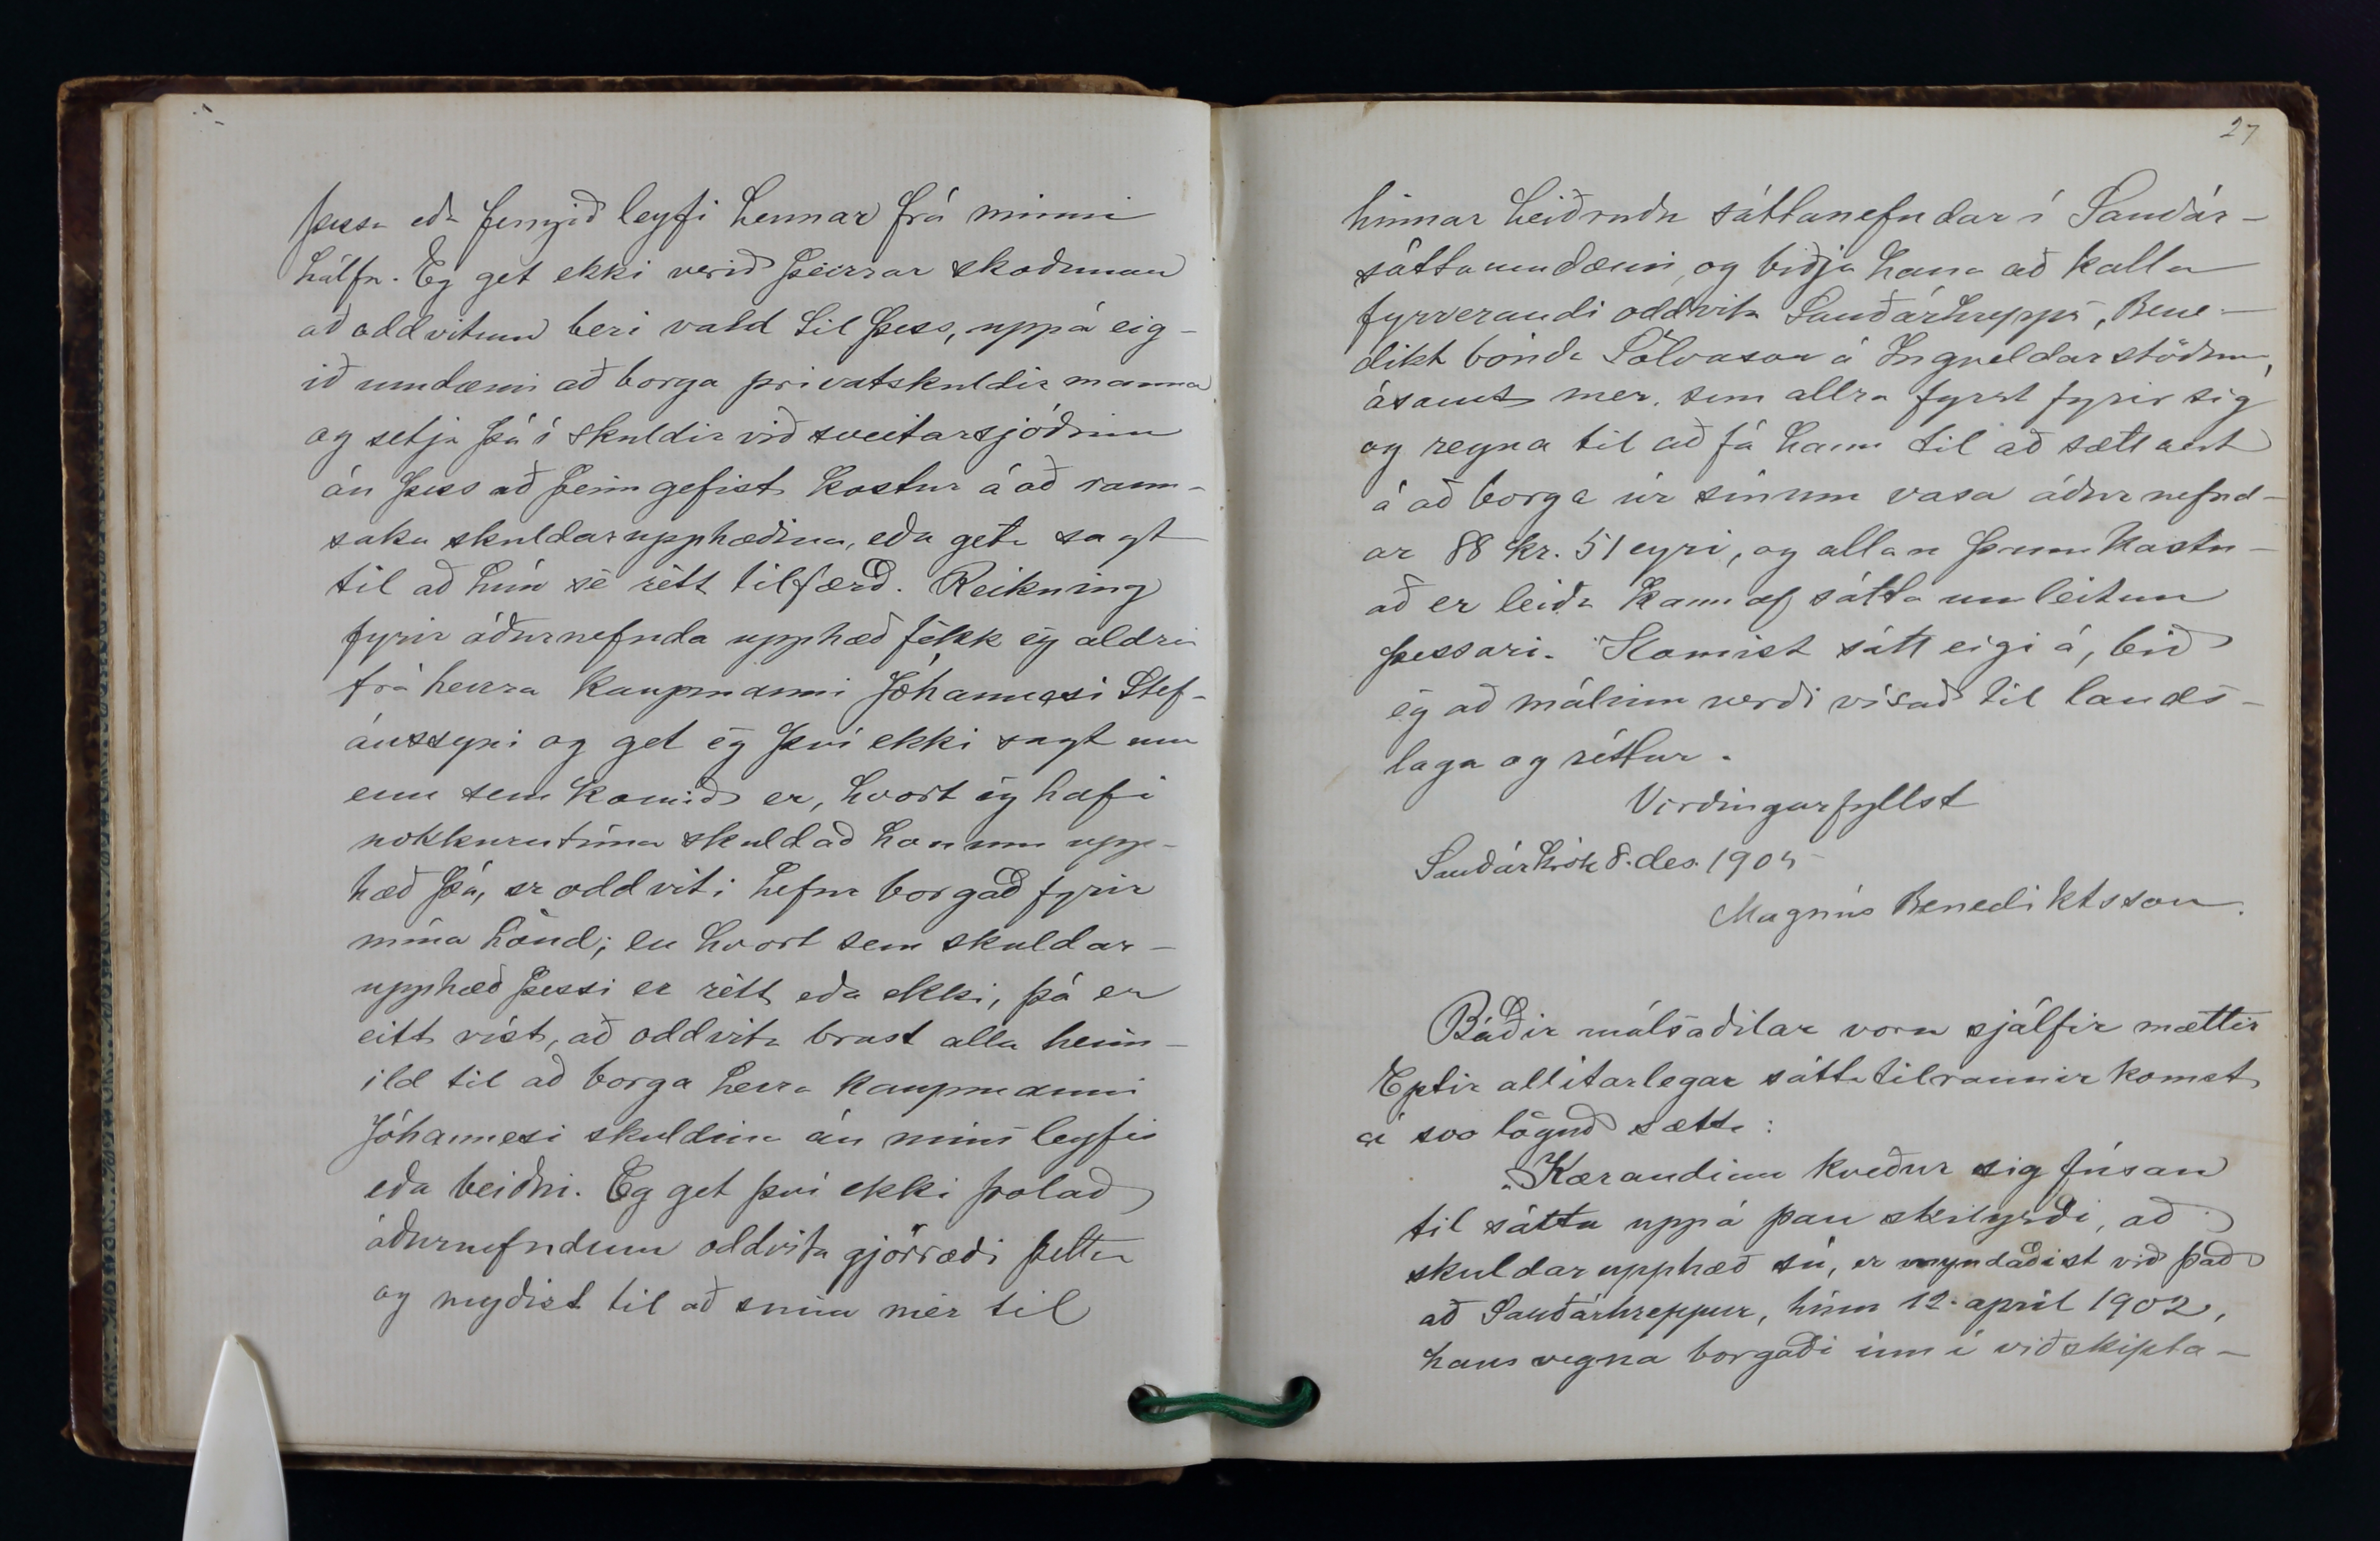 þessa eða fengið leyfi hennar frá minni
hálfu. Eg get ekki verið þeirrar skoðunar
að oddvitum beri vald til þess, uppá eig-
ið umdæmi að borga privatskuldir manna
og setja þá í skuldir við sveitarsjóðinn
án þess að þeim gefist kostur á að rann-
saka skuldarupphæðina, eða geta sagt
til að hún sé rétt tilfærð. Reikning
fyrir áðurnefnda upphæð fékk ég aldrei
frá herra kaupmanni Jóhannesi Stef-
ánssyni og get ég því ekki sagt um
enn sem komið er, hvort ég hafi
nokkurntíma skuldað honum upp-
hæð þá, er oddviti hefur borgað fyrir
mína hönd; en hvort sem skuldar-
upphæð þessi er rétt eða ekki, þá er
eitt víst, að oddvita brast alla heim-
ild til að borga herra kaupmanni
Jóhannesi skuldina án míns leyfis
eða beiðni. Eg get því ekki þolað
áðurnefndum oddvita gjörræði þetta
og neyðist til að snúa mér til
27
hinnar heiðruðu sáttanefndar í Sauðár-
sáttaumdæmi, og biðja hana að kalla
fyrverandi oddvita Sauðárhrepps, Bene-
dikt bónda Sölvason á Ingveldarstöðum,
ásamt mér, sem allra fyrst fyrir sig
og reyna til að fá hann til að sættast
á að borga úr sínum vasa áðurnefnd-
ar 88 kr. 51 eyri, og allan þann kostn-
að er leiða kann af sáttaumleitun
þessari. Komist sátt eigi á, bið
ég að málinu verði vísað til lands-
laga og réttar.
Virðingarfyllst
Sauðárkrók 8. des. 1904
Magnús Benediktsson.
Báðir málsaðilar voru sjálfir mættir
Eptir allítarlegar sáttatilraunir komst
á svo löguð sætt:
„Kærandinn kveður sig fúsan
til sátta uppá þau skilyrði, að
skuldarupphæð sú, er myndaðist við það
að Sauðárhreppur, hinn 12. apríl 1902,
hans vegna borgaði inn í viðskipta-